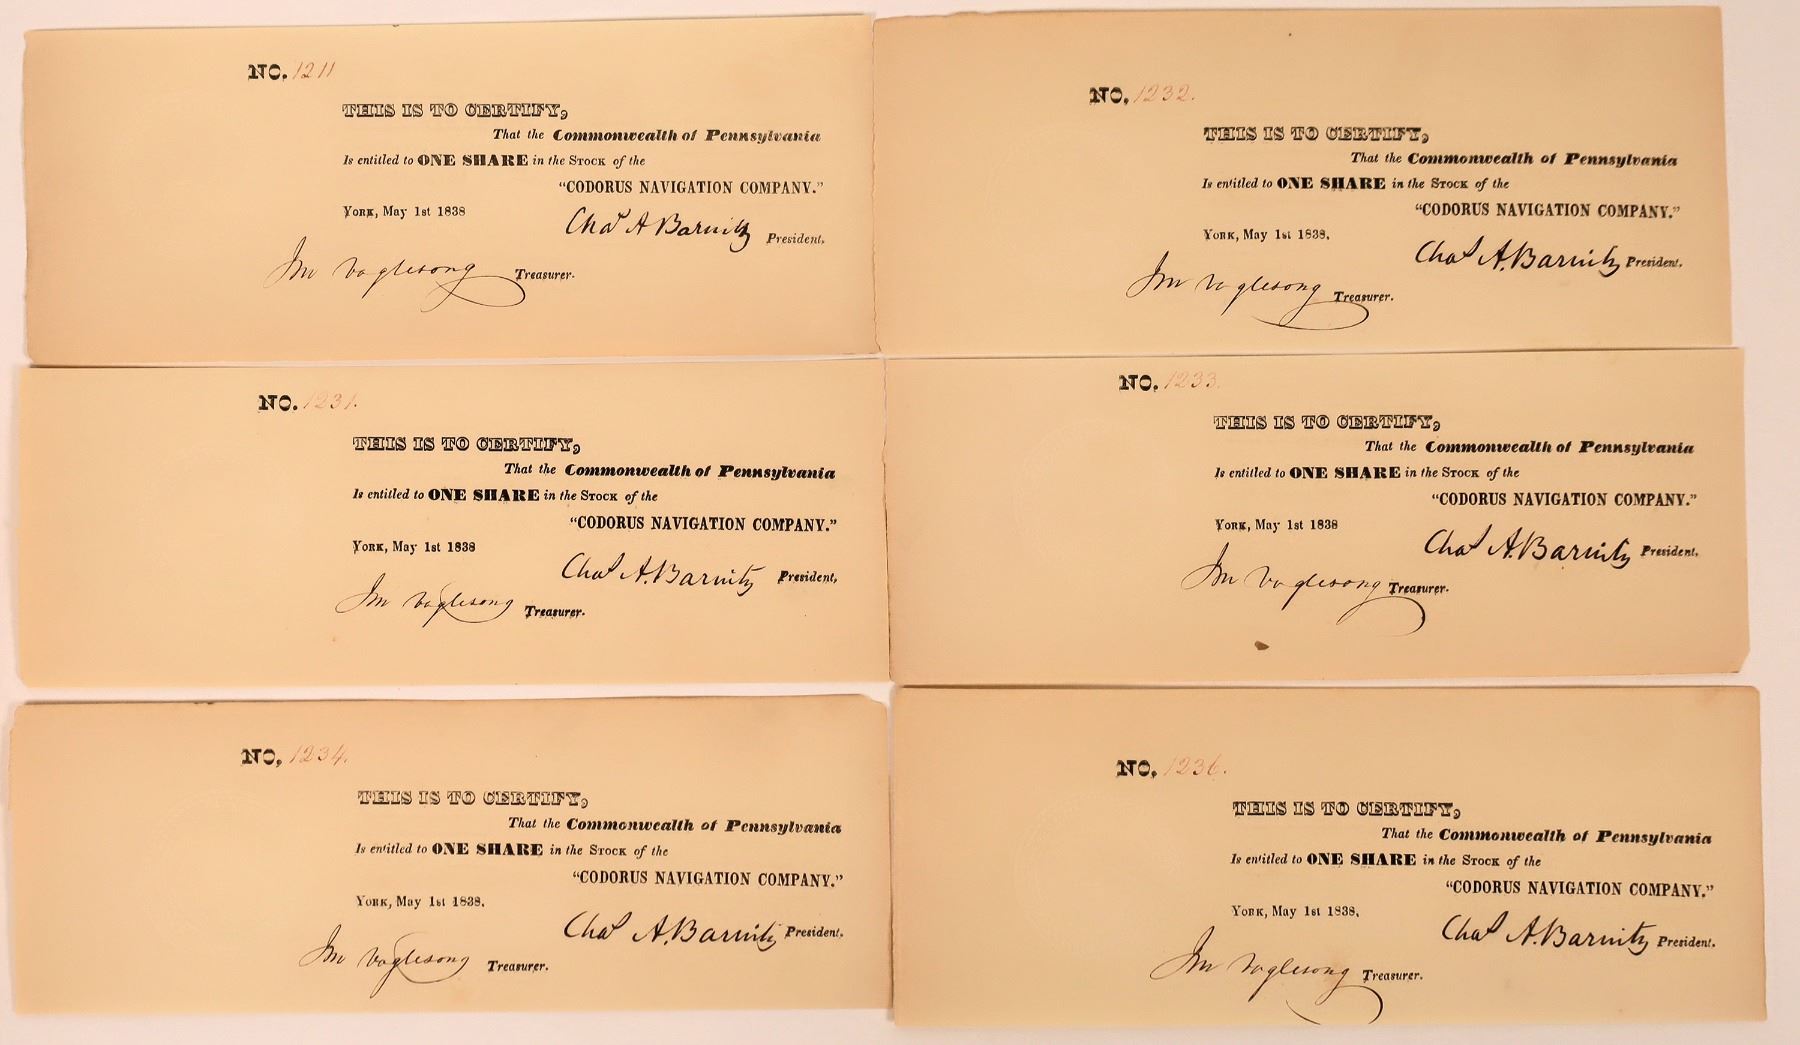 NO. 1211
THIS IS TO CERTIFY,
That the Commonwealth of Pennsylvania
Is entitled to ONE SHARE in the Stock of the
"CODORUS NAVIGATION COMPANY."
York, May 1st 1838
Chas A Barnitz President,
Jno Voglesong Treasurer.
NO, 1232.
THIS IS TO CERTIFY,
That the Commonwealth of Pennsylvania
Is entitled to ONE SHARE in the Stock of the
"CODORUS NAVIGATION COMPANY."
York, May 1st 1838.
Chas A. Barnitz President.
Jno Voglesong Treasurer.
NO. 1231.
THIS IS TO CERTIFY,
That the Commonwealth of Pennsylvania
Is entitled to ONE SHARE in the Stock of the
"CODORUS NAVIGATION COMPANY."
York, May 1st 1838
Chas A. Barnitz President,
Jno Voglesong Treasurer.
NO. 1233.
THIS IS TO CERTIFY,
That the Commonwealth of Pennsylvania
Is entitled to ONE SHARE in the Stock of the
"CODORUS NAVIGATION COMPANY."
York, May 1st 1838
Chas A. Barnitz President,
Jno Voglesong Treasurer.
NO, 1234.
THIS IS TO CERTIFY,
That the Commonwealth of Pennsylvania
Is entitled to ONE SHARE in the Stock of the
"CODORUS NAVIGATION COMPANY."
York, May 1st 1838.
Chas A. Barnitz President.
Jno Voglesong Treasurer.
NO, 1236.
THIS IS TO CERTIFY,
That the Commonwealth of Pennsylvania
Is entitled to ONE SHARE in the Stock of the
"CODORUS NAVIGATION COMPANY."
York, May 1st 1838,
Chas A. Barnitz President.
Jno Voglesong Treasurer.